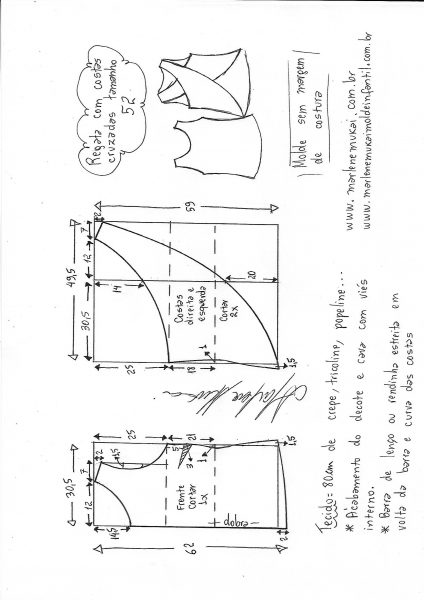 Regata com costas
cruzadas tamanho
52
Molde sem margem
de costura
www.marlenemukai.com.br
www.marlenemukaimoldeinfantil.com.br
49,5
30,5
12
7
2
14
59
25
18
1
20
1,5
Costas
direita e
esquerda
Cortar
2x
30,5
12
7
2
1,5
14,5
62
25
21
5
3
1
1,5
2
Frente
Cortar
1x
dobra
Tecido = 80cm de crepe, tricoline, popeline...
* Acabamento do decote e cava com viés
interno.
* Barra de lenço ou rendinha estreita em
volta da barra e curva das costas